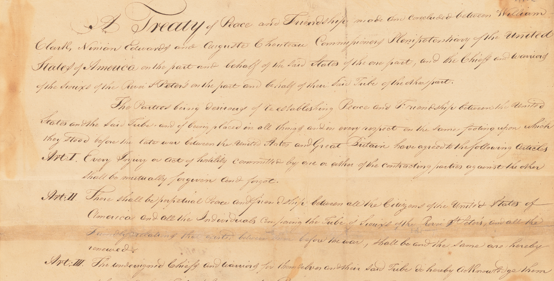 A Treaty of Peace and Friendship made and concluded between William
Clark, Ninian Edwards and Auguste Chouteau Commissioners Plenipotentiary of the United
States of America on the part and behalf of the said States of the one part, and the Chiefs and warriors
of the Sioux of the River St Peter's on the part and behalf of their said Tribe of the other part.
The Parties being desirous of re establishing Peace and Friendship between the United
States and the said Tribe and of being placed in all things and in every respect on the same footing upon which
they stood before the late war between the United States and Great Britain have agreed to the following Articles
Art: I Every Injury or act of hostility committed by one or other of the contracting parties against the other
shall be mutually forgiven and forgot.
Art: II There shall be perpetual Peace and friendship between all the Citizens of the United States of
America and all the Individuals composing the Tribe of Sioux of the River St Peter's, and all the
before the war, shall be and the same are hereby
renewed
Art: III The undersigned Chiefs and warriors for themselves and their said Tribe do hereby acknowledge them